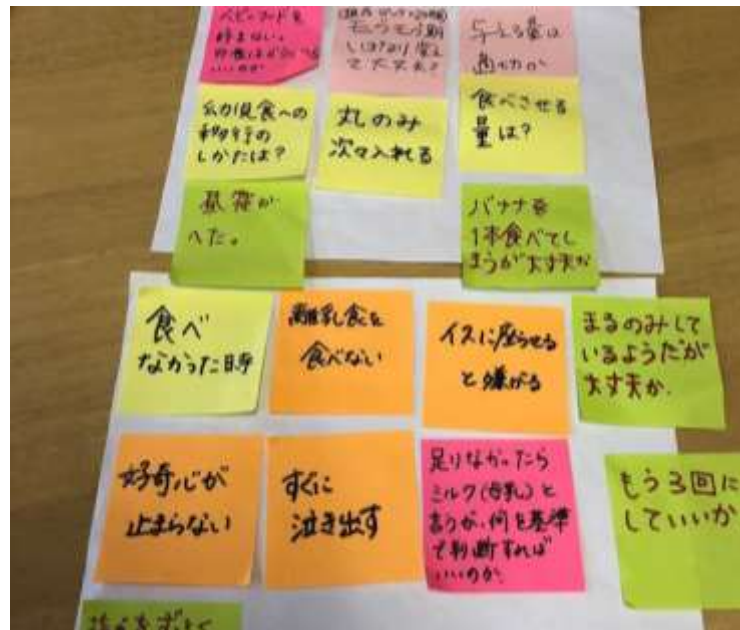 ベビーフードを
好まない。
いいのか
モグモグ期
与える量は
適切か
幼児食への
移行の
しかたは？
丸のみ
次々入れる
食べさせる
量は？
昼寝が
へた。
バナナを
1本食べてし
まうが大丈夫か
食べ
なかった時
離乳食を
食べない
イスに座らせる
と嫌がる
まるのみして
いるようだが
大丈夫か.
好奇心が
止まらない
すぐに
泣き出す
足りなかったら
ミルク(母乳)と
言うが、何を基準
で判断すれば
いいのか.
もう3回に
していいか